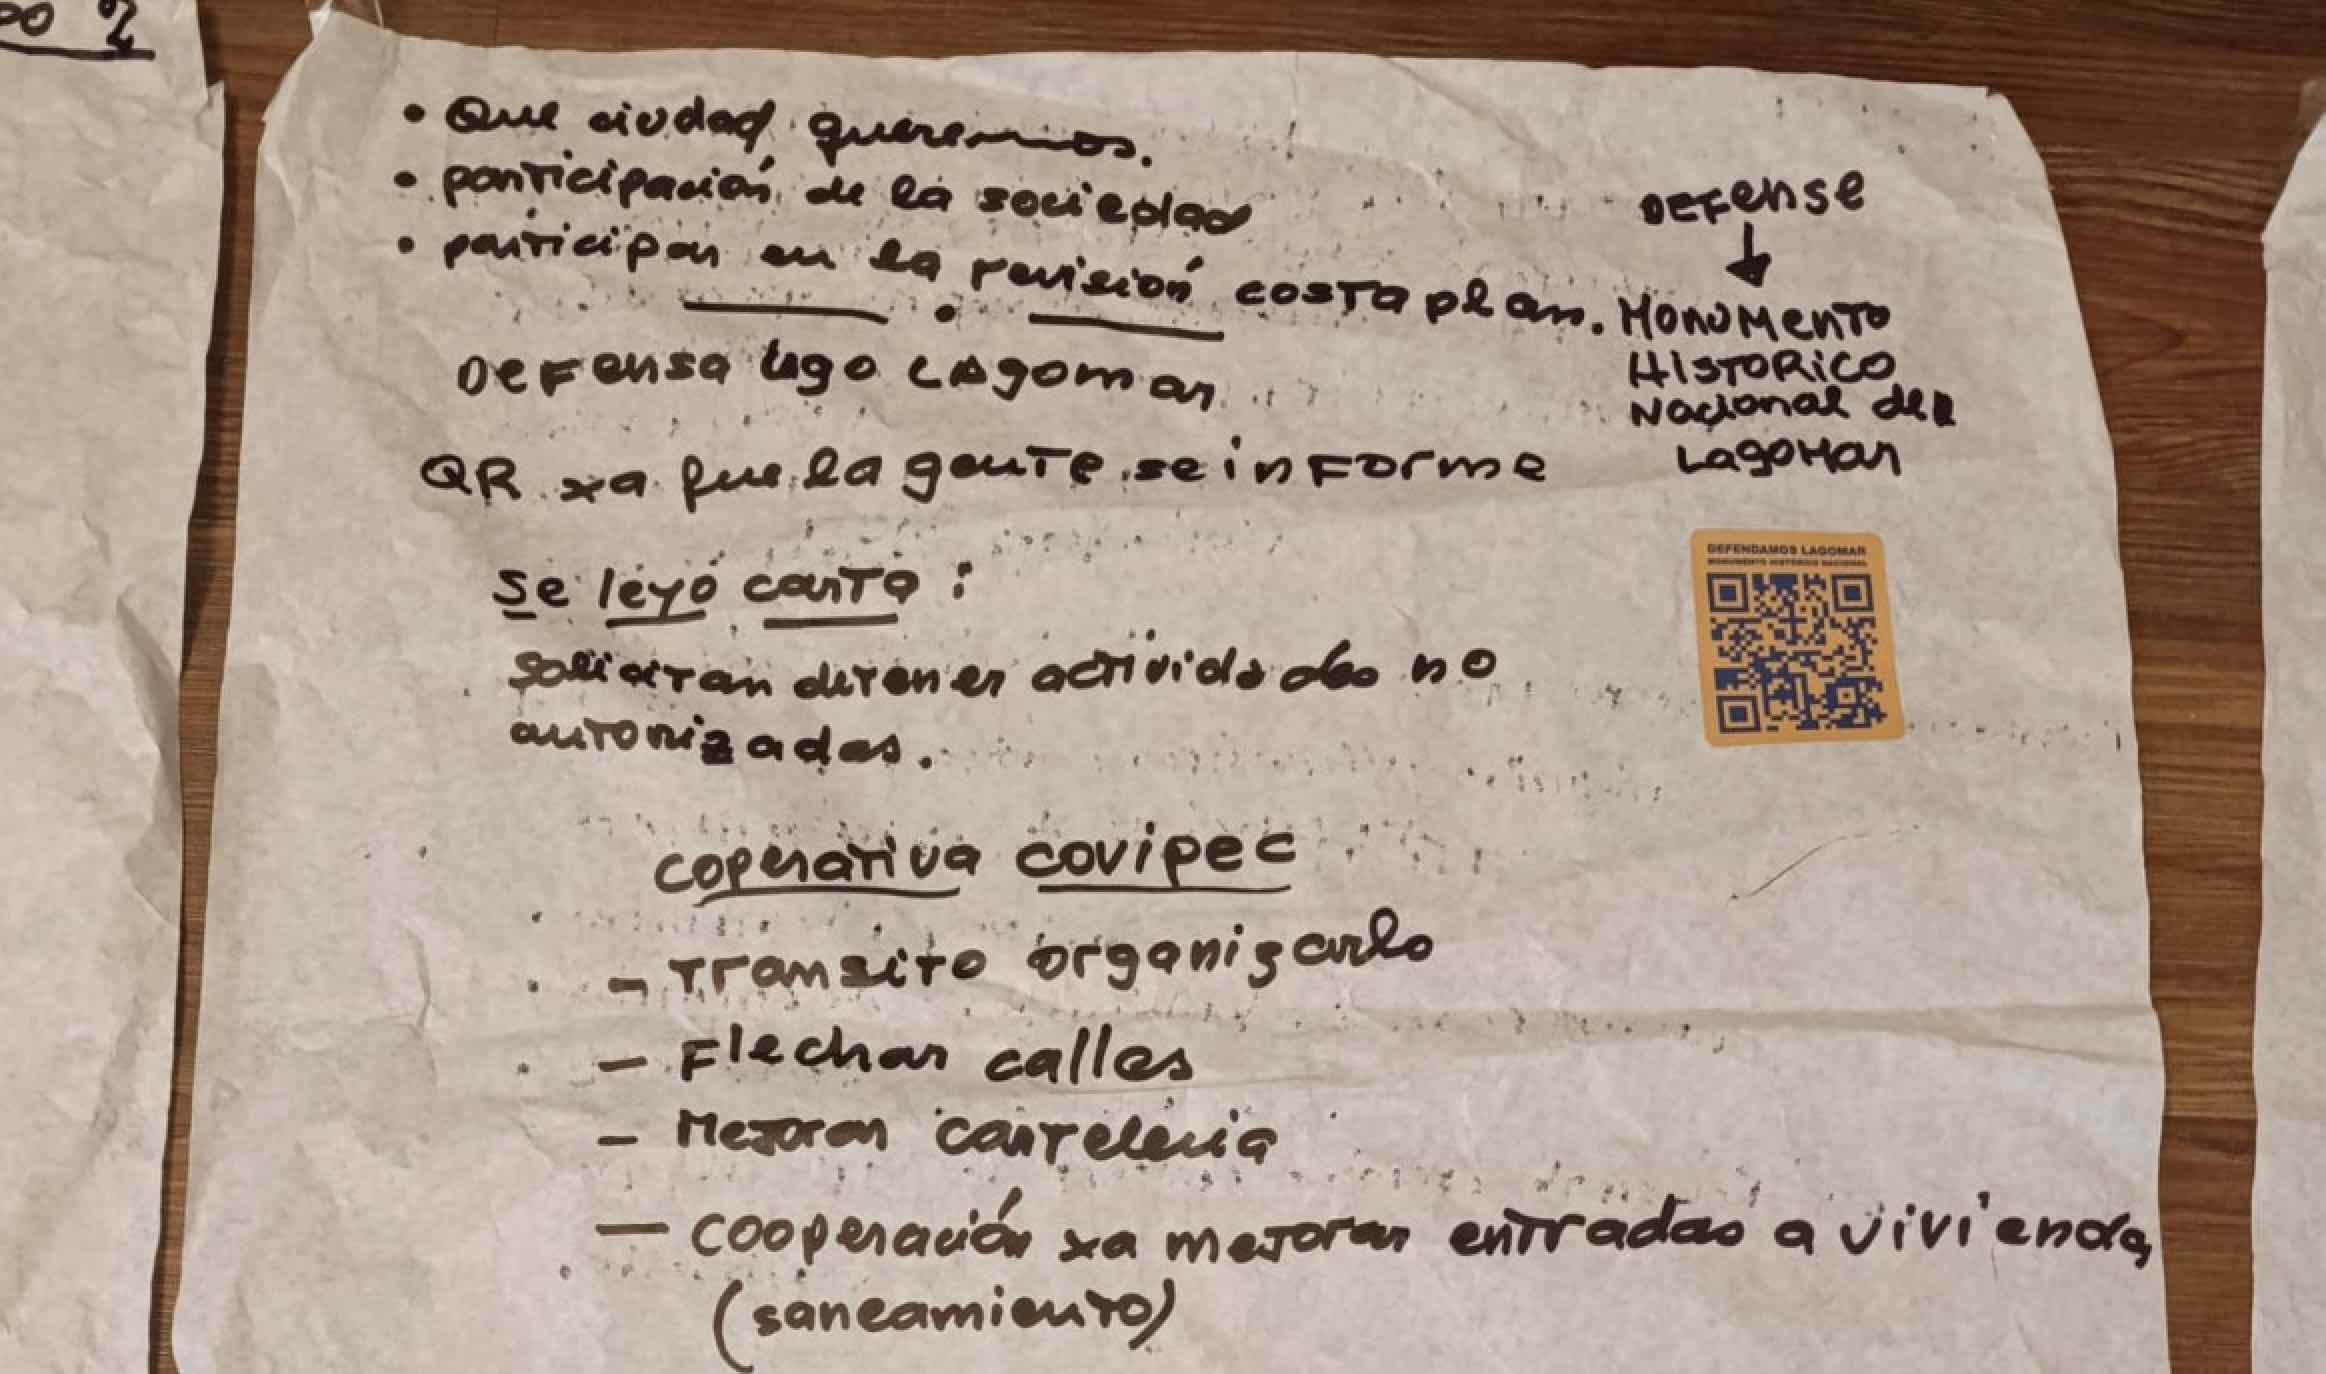 • Que ciudad queremos.
• participación de la sociedad
• participar en la revisión costa plan.
Defensa lago Lagomar
QR xa que la gente se informe
Se leyó carta:
solicitan detener actividades no
autorizadas.
coperativa covipec
- Transito organizarlo
- Flechar calles
- Mejorar carteleria
- cooperación xa mejorar entradas a vivienda
(saneamiento)
Defense
↓
Monumento
Historico
Nacional del
Lagomar
DEFENDAMOS LAGOMAR
MONUMENTO HISTÓRICO NACIONAL